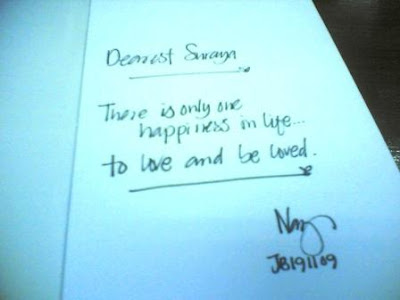 Dearest Suraya
There is only one
happiness in life...
to love and be loved.
Naz
JB191109